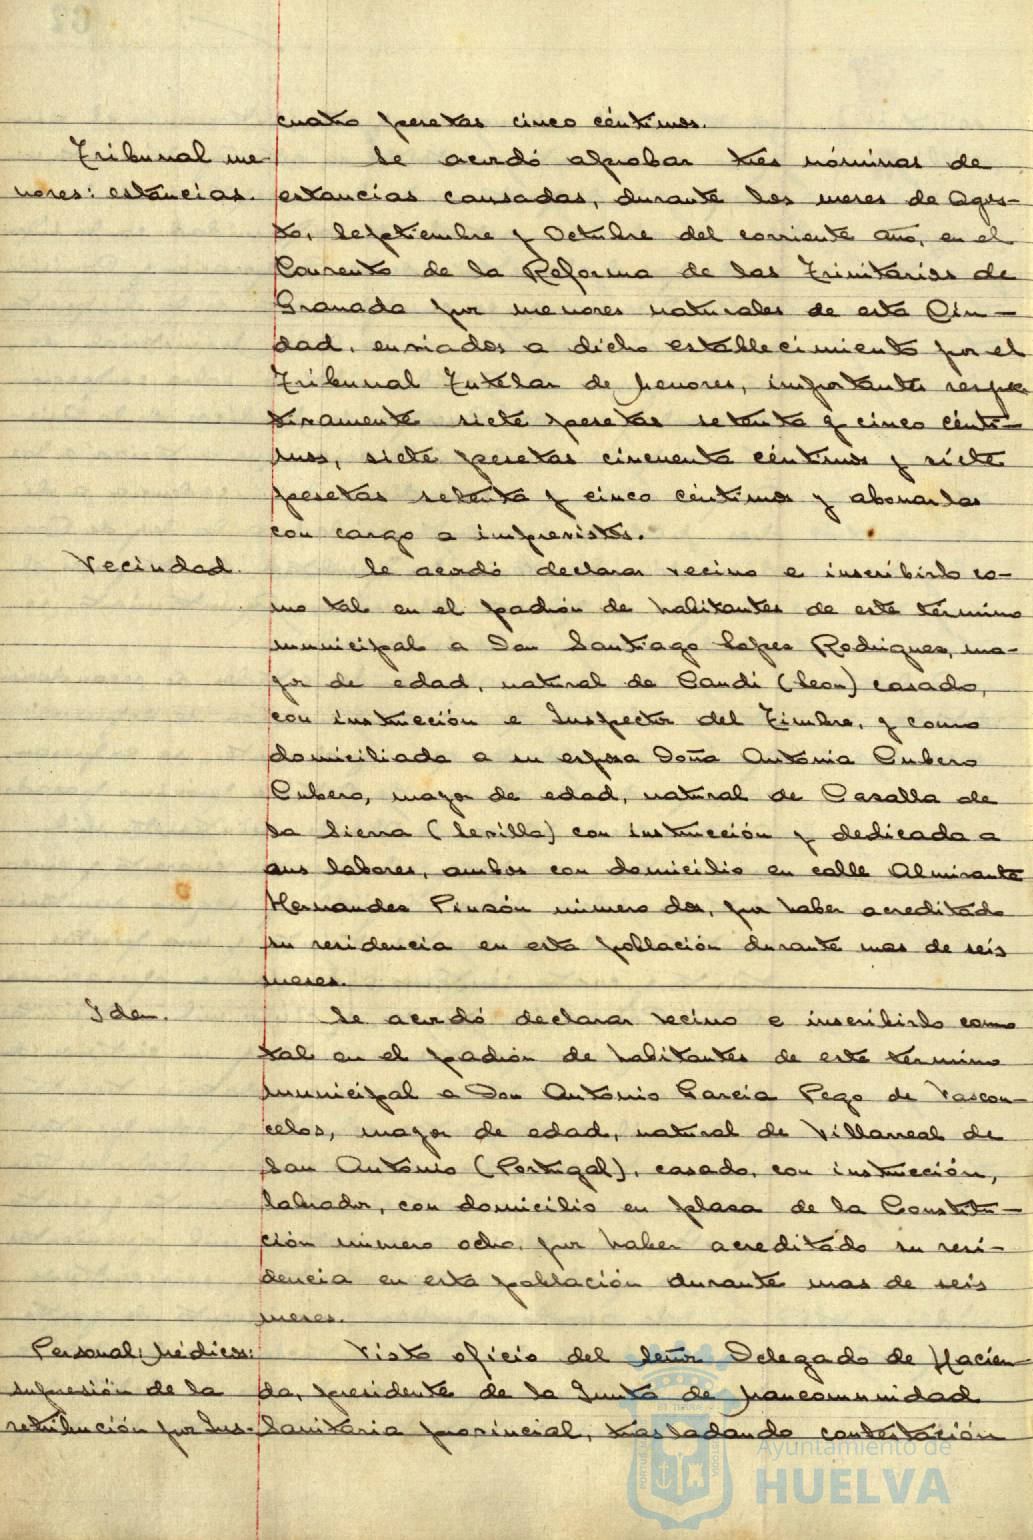 cuatro pesetas cinco céntimos.
Tribunal me-
nores: estancias.
Se acordó aprobar tres nóminas de
estancias causadas, durante los meses de Agos-
to, Septiembre y Octubre del corriente año, en el
Convento de la Reforma de las Trinitarias de
Granada por menores naturales de esta Ciu-
dad, enviados a dicho establecimiento por el
Tribunal Tutelar de Menores, importantes respec
tivamente siete pesetas setenta y cinco cénti-
mos, siete pesetas cincuenta céntimos y siete
pesetas setenta y cinco céntimos y abonarlas
con cargo a imprevistos.
Vecindad.
Se acordó declarar vecino e inscribirlo co-
mo tal en el padrón de habitantes de este término
municipal a Don Santiago Lopez Rodriguez, ma-
yor de edad, natural de Gandi (Leon) casado,
con instrucción e Inspector del Timbre, y como
domiciliada a su esposa Doña Antonia Cubero
Cubero, mayor de edad, natural de Cazalla de
la Sierra (Sevilla) con instrucción y dedicada a
sus labores, ambos con domicilio en calle Almirante
Hernandez Pinzón número dos, por haber acreditado
su residencia en esta población durante mas de seis
meses.
Iden.
Se acordó declarar vecino e inscribirlo como
tal en el padrón de habitantes de este término
municipal a Don Antonio Garcia Pego de Vascon-
celos, mayor de edad, natural de Villarreal de
San Antonio (Portugal), casado, con instrucción,
labrador, con domicilio en plaza de la Constitu-
ción número ocho, por haber acreditado su resi-
dencia en esta población durante mas de seis
meses.
Personal: Médicos:
supresión de la
retribución por Ins-
Visto oficio del Señor Delegado de Hacien-
da, presidente de la Junta de Mancomunidad
Sanitaria provincial, trasladando contestación
Ayuntamiento de
HUELVA